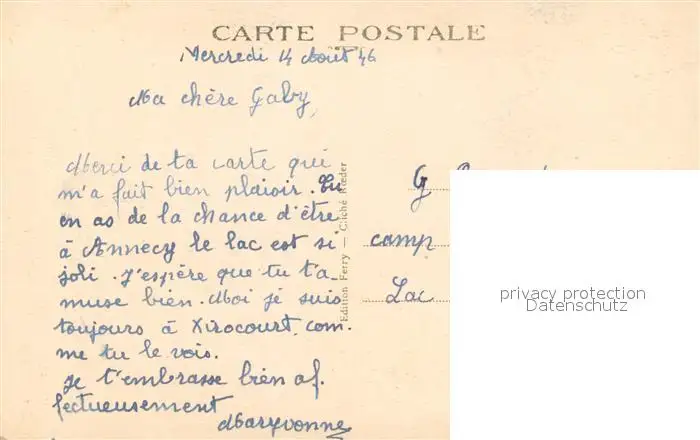 CARTE POSTALE
Mercredi 14 Août 46
Ma chère Gaby,
Merci de ta carte qui
m'a fait bien plaisir. Tu
en as de la chance d'être
à Annecy le lac est si
joli. J'espère que tu t'a-
muse bien. Moi je suis
toujours à Xirocourt com-
me tu le vois.
Je t'embrasse bien af.
fectueusement
Maryvonne
Edition Ferry — Cliché Réder
G
camp
Lac
privacy protection
Datenschutz